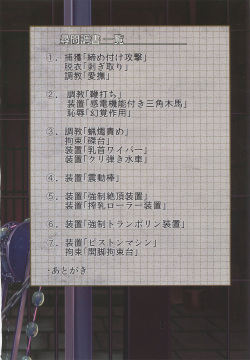 尋問演書一覧
①．捕獲「締め付け攻撃」
脱衣「剥ぎ取り」
調教「愛撫」
②．調教「鞭打ち」
装置「感電機能付き三角木馬」
恥辱「幻覚作用」
③．調教「蝋燭責め」
拘束「磔台」
装置「乳首ワイパー」
装置「クリ弾き水車」
④．装置「震動棒」
⑤．装置「強制絶頂装置」
装置「搾乳ローラー装置」
⑥．装置「強制トランポリン装置」
⑦．装置「ピストンマシン」
拘束「開脚拘束台」
・あとがき